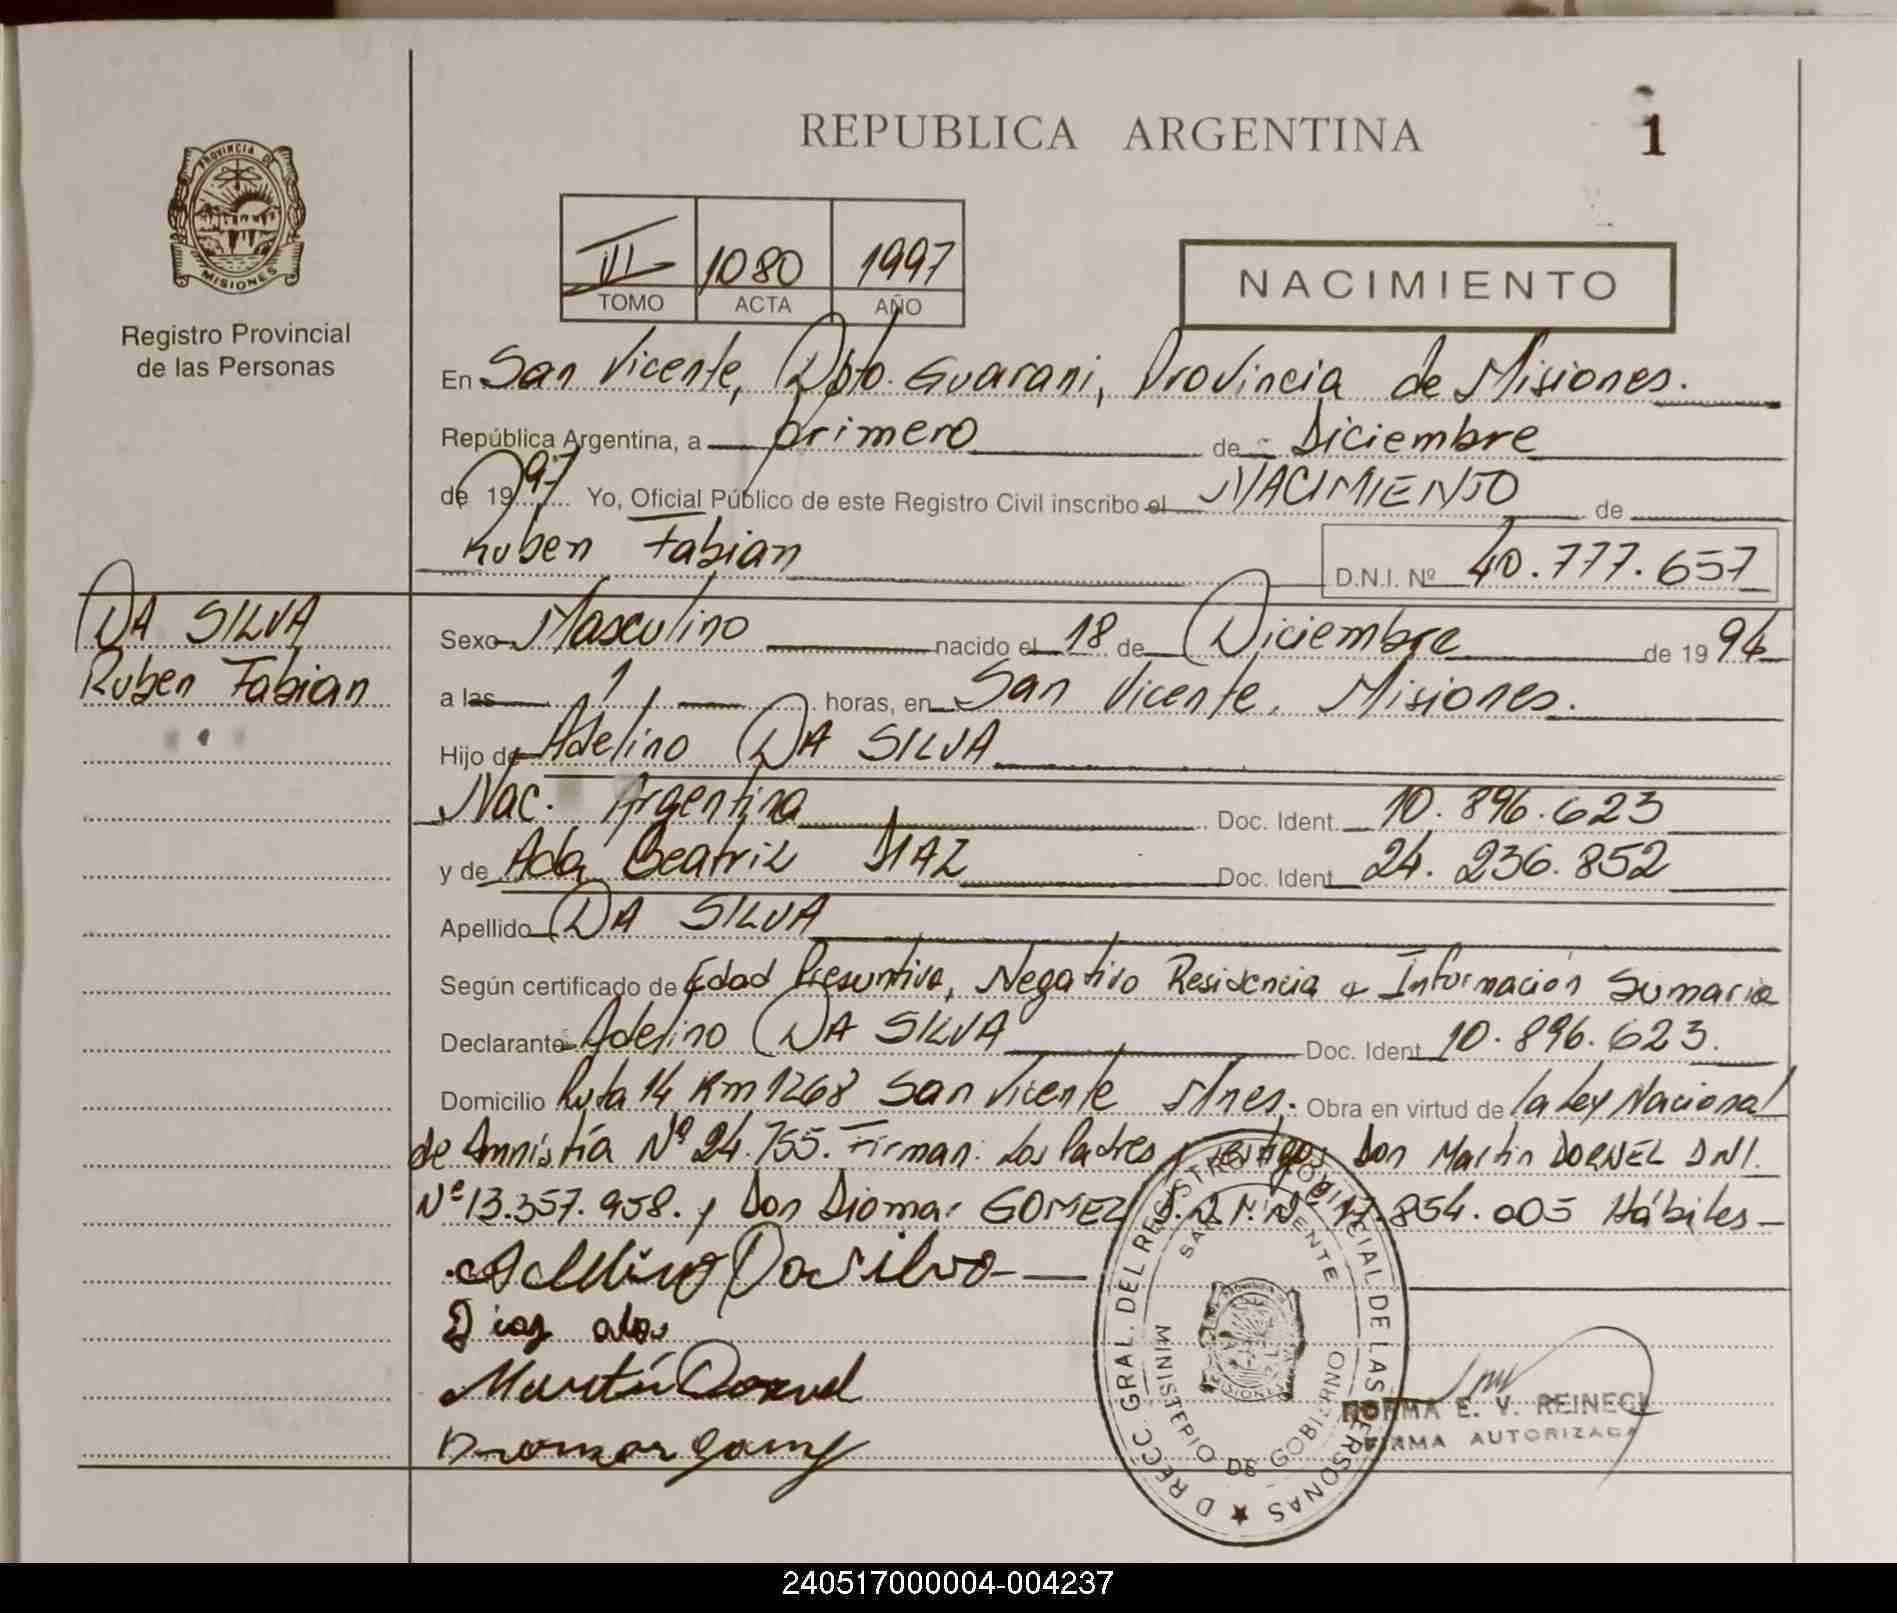 REPUBLICA ARGENTINA
1
PROVINCIA DE
MISIONES
Registro Provincial
de las Personas
VI 1080 1997
TOMO ACTA AÑO
NACIMIENTO
En San Vicente, Dpto. Guarani, Provincia de Misiones.
República Argentina, a primero de Diciembre
de 1997 Yo, Oficial Público de este Registro Civil inscribo el NACIMIENTO de
Ruben Fabian D.N.I. Nº 40.777.657
DA SILVA
Ruben Fabian
Sexo Masculino nacido el 18 de Diciembre de 1994
a las horas, en San Vicente, Misiones.
Hijo de Adelino DA SILVA
Nac. Argentina Doc. Ident. 10.896.623
y de Ada Beatriz DIAZ Doc. Ident. 24.236.852
Apellido DA SILVA
Según certificado de Edad Presuntiva, Negativo Residencia e Información Sumaria
Declarante Adelino DA SILVA Doc. Ident. 10.896.623.
Domicilio Ruta 14 Km 1268 San Vicente Mnes. Obra en virtud de la Ley Nacional
de Amnistía Nº 24.755. Firman: Los Padres y testigos Don Martin DORNEL DNI.
Nº 13.357.958. y Don Diomar GOMEZ D.N.I. Nº 17.854.005 Hábiles
Adelino Da Silva
Diaz ada
Martín Dornel
Diomar Gomez
DIRECC. GRAL. DEL REGISTRO PROVINCIAL DE LAS PERSONAS
SAN VICENTE
MINISTERIO DE GOBIERNO
NORMA E. V. REINECK
FIRMA AUTORIZADA
240517000004-004237